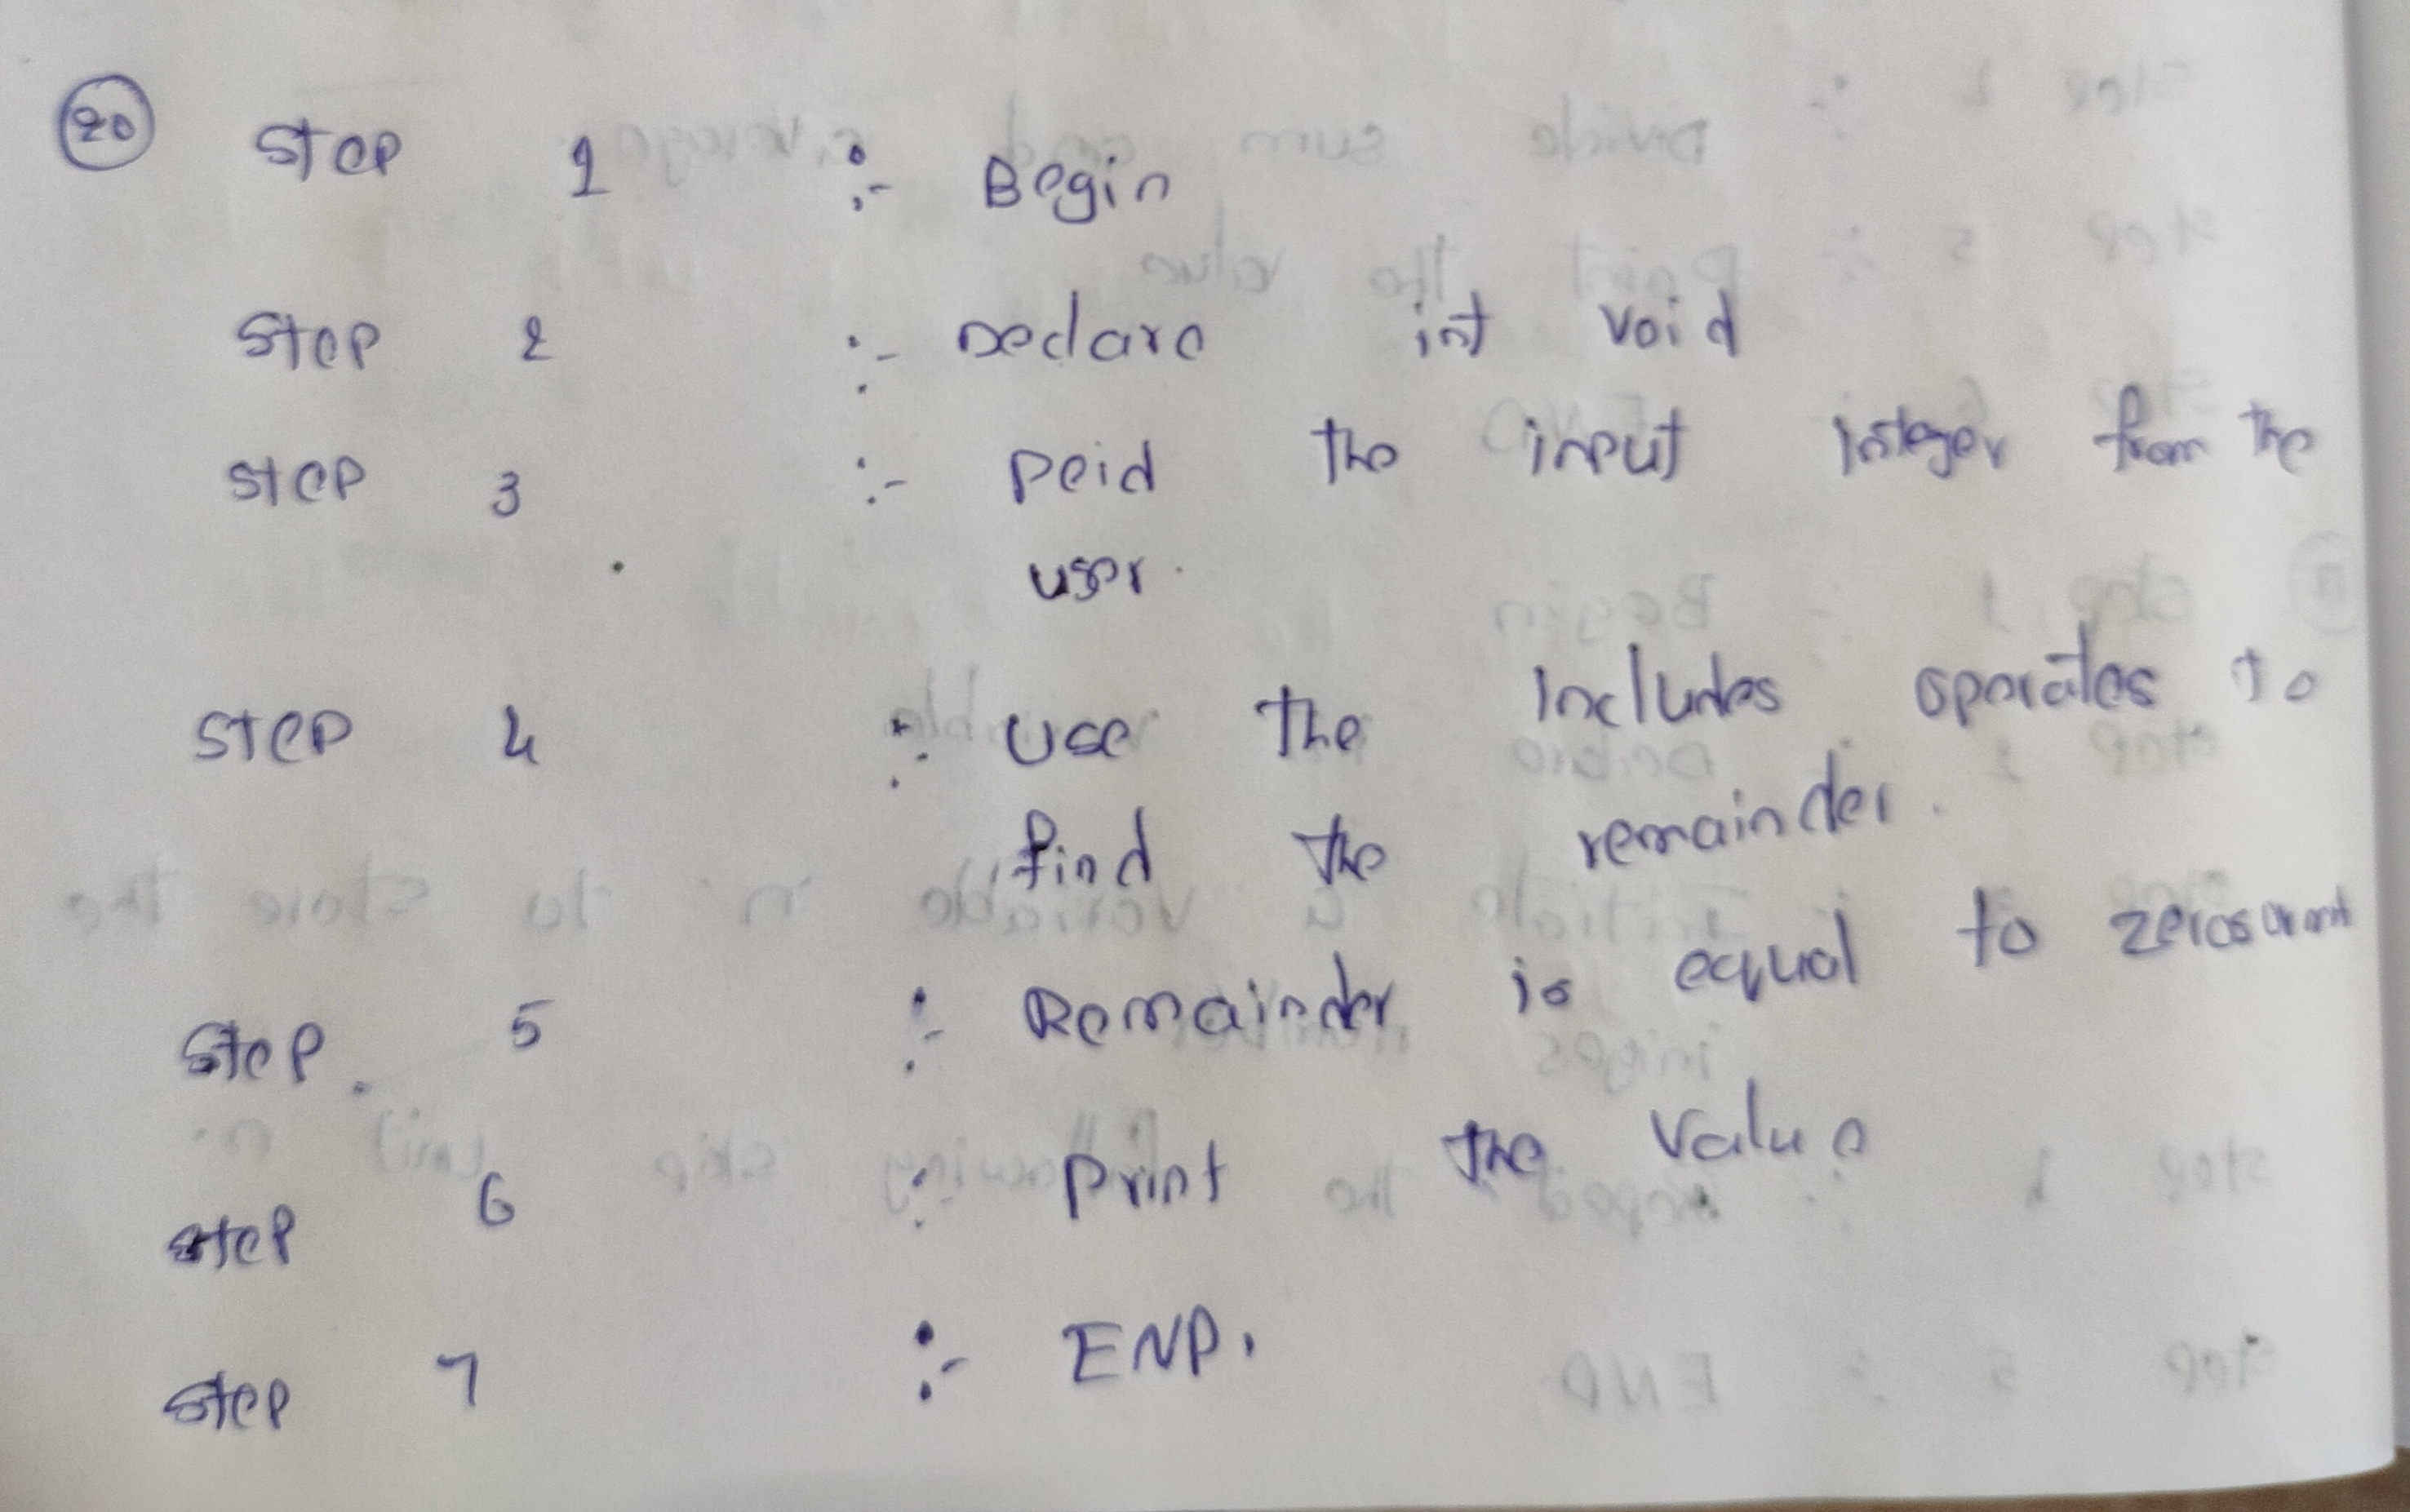 20 Step 1 :- Begin
Step 2 :- Declare int void
Step 3 :- Reid the input integer from the
user.
Step 4 :- Use the includes operates to
find the remainder.
Step 5 :- Remainder is equal to zeros or not
Step 6 :- Print the value
Step 7 :- END.